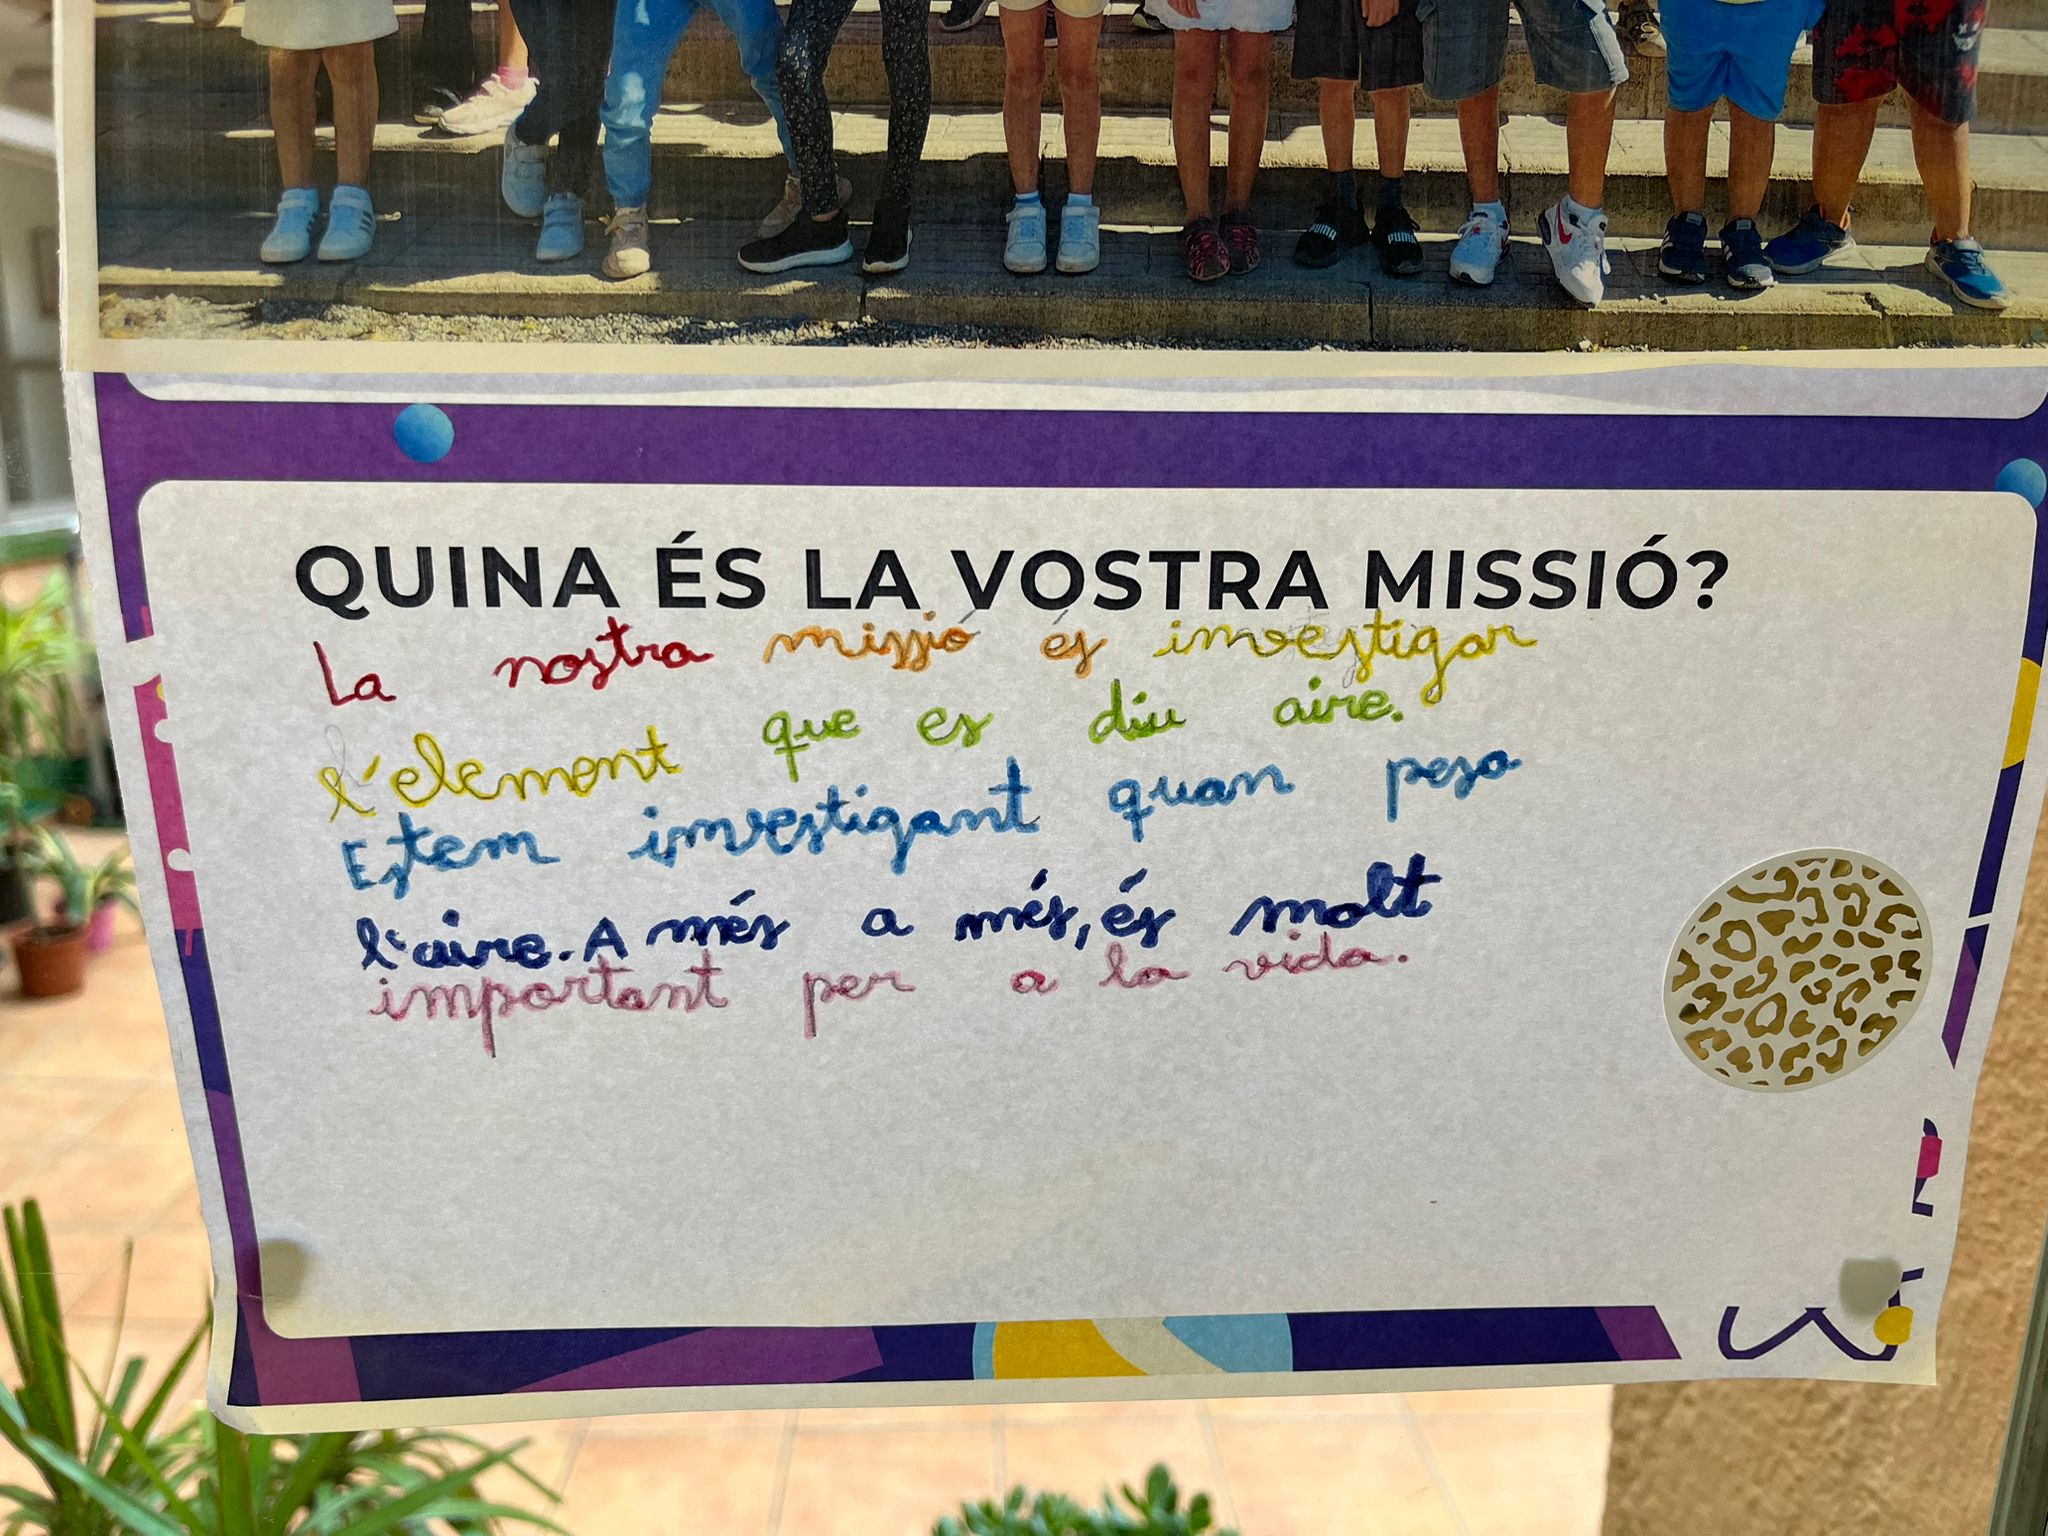 QUINA ÉS LA VOSTRA MISSIÓ?
La nostra missió és investigar
l'element que es diu aire.
Estem investigant quan pesa
l'aire. A més a més, és molt
important per a la vida.
PUMA PUMA